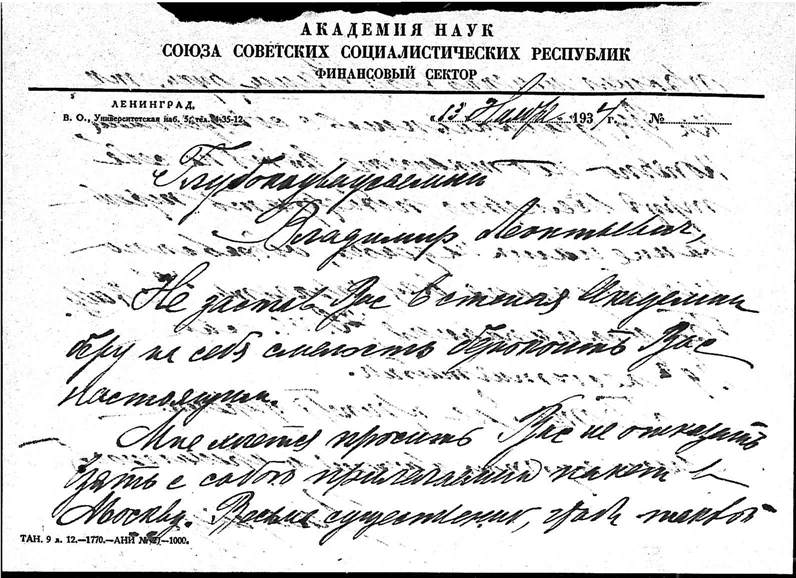 АКАДЕМИЯ НАУК
СОЮЗА СОВЕТСКИХ СОЦИАЛИСТИЧЕСКИХ РЕСПУБЛИК
ФИНАНСОВЫЙ СЕКТОР
ЛЕНИНГРАД,
В. О., Университетская наб. 5, тел. 4-35-12.
«13 1934 г. №
Глубокоуважаемый
Владимир Леонтьевич,
Не застав Вас в стенах Академии
беру на себя смелость беспокоить Вас
настоящим.
Мне хочется просить Вас не отказать
взять с собою прилагаемый пакет в
Москву. Весьма существенно, чтобы таковой
ТАН. 9 л. 12.—1770.—АНИ № —1000.